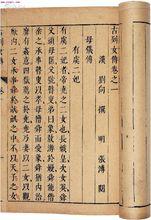 古列女傳卷之一
漢 劉向 撰 明 張溥 閱
母儀傳
有虞二妃
有虞二妃者帝堯之二女也長娥皇次女英舜
父頑母嚚父號瞽叟弟曰象敖游於嫚舜能諧
柔之承事瞽叟以孝母憎舜而愛象舜猶內治
靡有姦意四嶽薦之於堯堯乃妻以二女以觀
厥內二女承事舜於畎畝之中不以天子之女